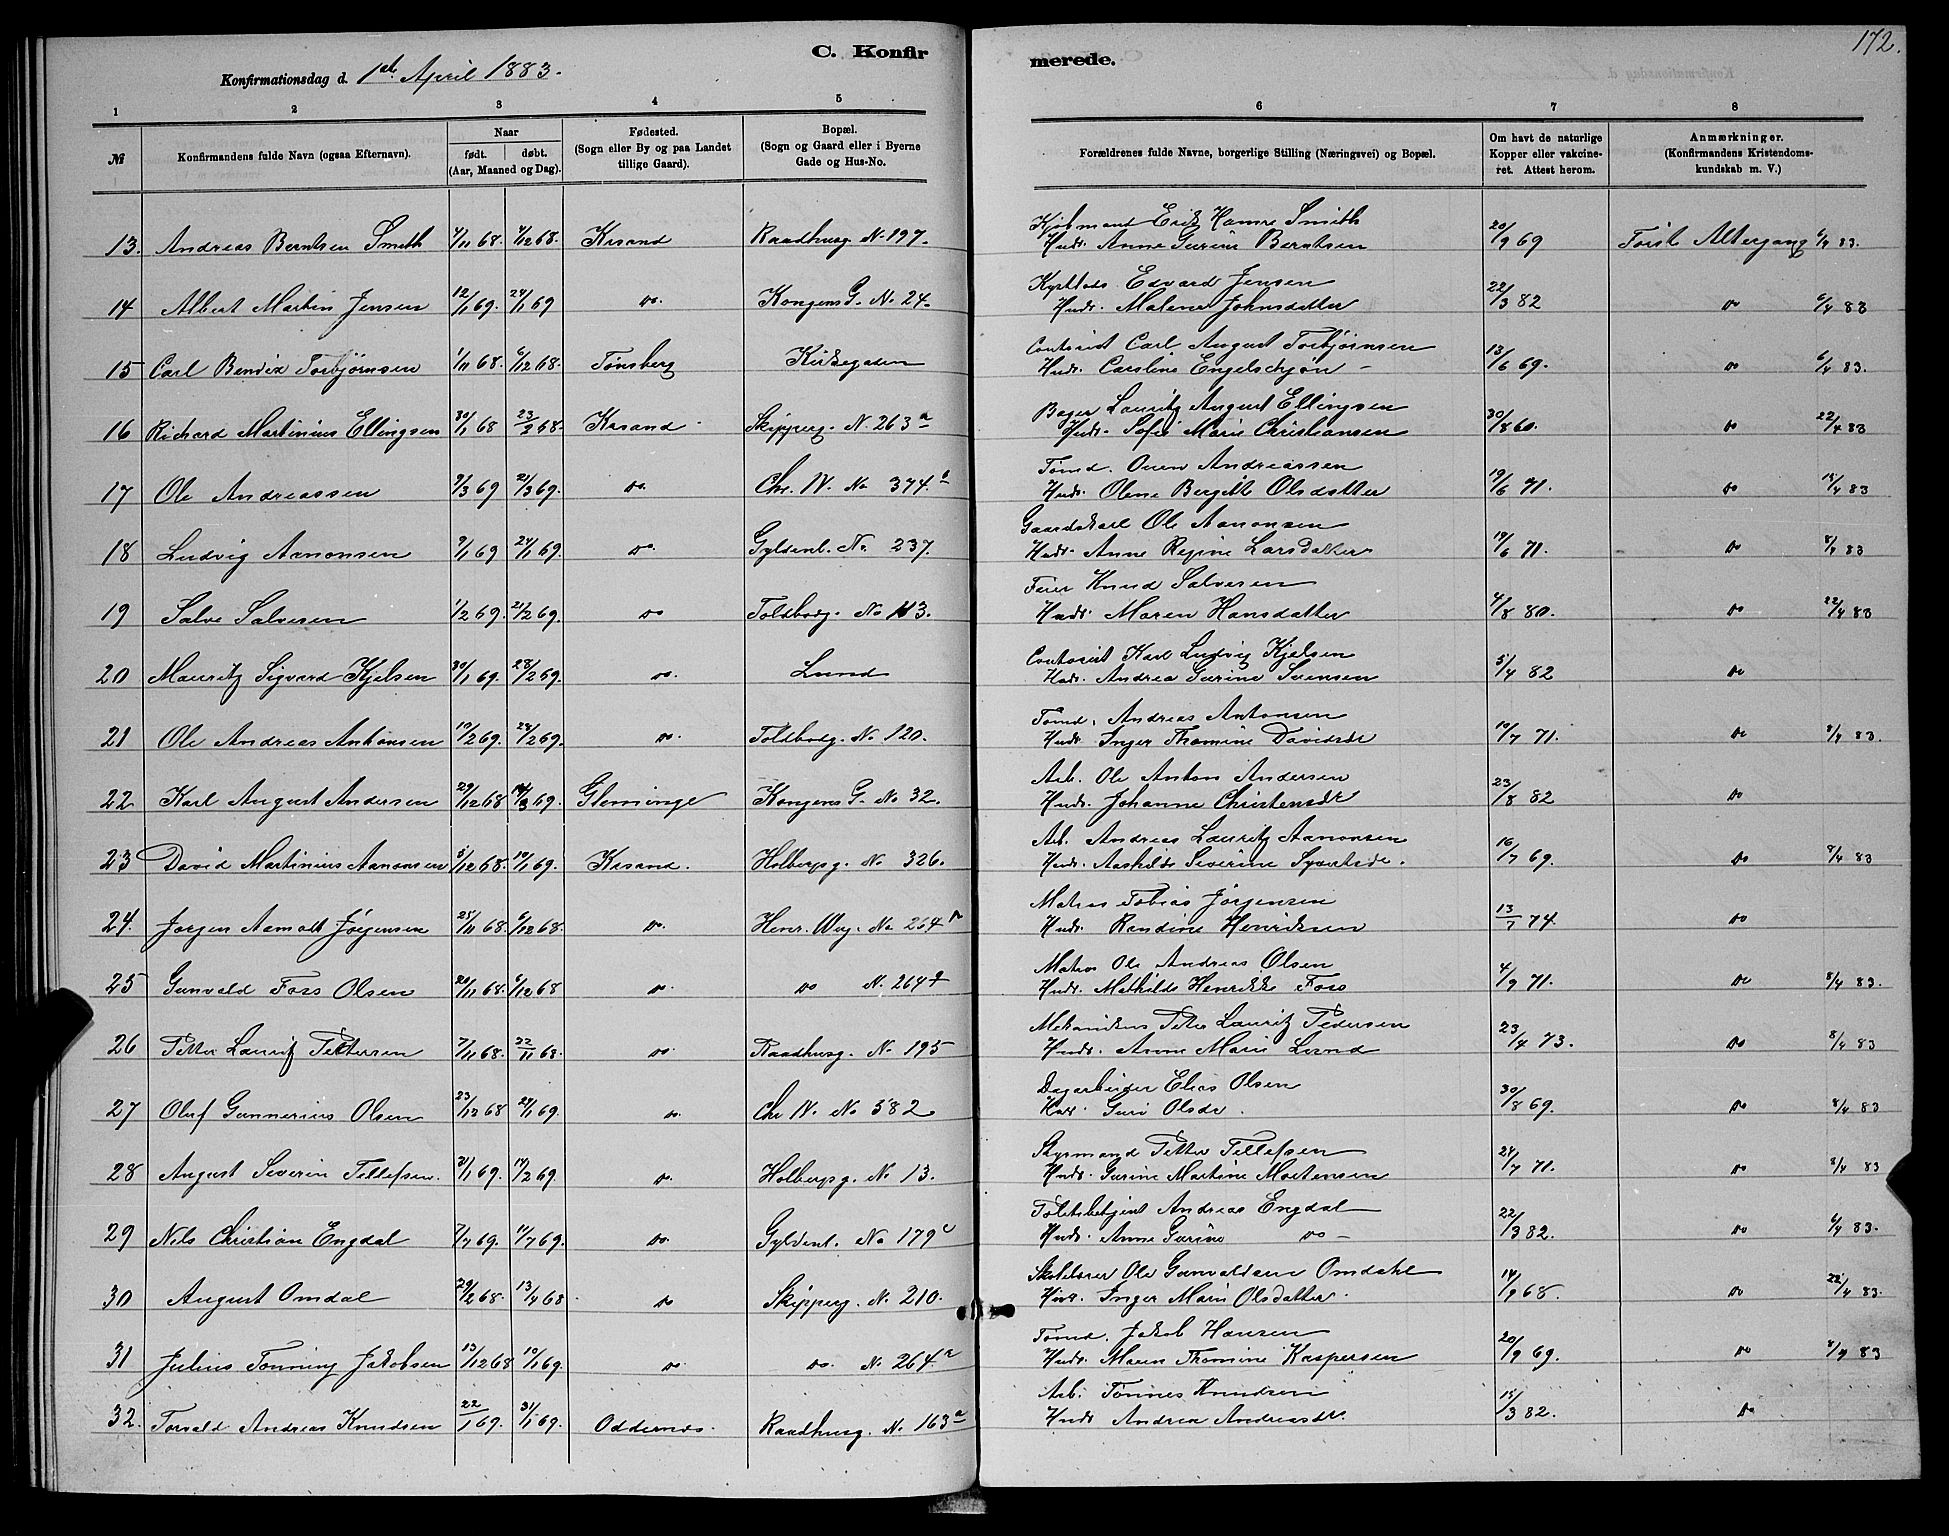 172.
C. Konfirmerede.
Konfirmationsdag d. 1ste April 1883.
1 2 3 4 5 6 7 8
№ Konfirmandens fulde Navn (ogsaa Efternavn). Naar født. døbt. (Aar, Maaned og Dag). Fødested. (Sogn eller By og paa Landet tillige Gaard). Bopæl. (Sogn og Gaard eller i Byerne Gade og Hus-No. Forældrenes fulde Navne, borgerlige Stilling (Næringsvei) og Bopæl. Om havt de naturlige Kopper eller vakcineret. Attest herom. Anmærkninger. (Konfirmandens Kristendomskundskab m. V.)
Kjøbmand Erik Hamre Smith
13. Andreas Berntsen Smith 4/11 68. 4/12 68. Krsand Raadhusg. No 197. Hust. Anne Gurine Berntsen 20/9 69 Først Altergang 6/4 83.
Edvard Jensen
14 Albert Martin Jensen 12/1 69. 24/1 69 do. Kongens G. No 24. Hust. Malene Johnsdatter 22/3 82 do 6/4 83
Contorist Carl August Torbjørnsen
15 Carl Bendix Torbjørnsen 1/11 68. 6/12 68. Tønsberg Kirkegaden Hust. Caroline Engelschjøn 13/6 69. do 6/4 83.
Bager Lauritz August Ellingsen
16 Richard Martinius Ellingsen 30/1 68 23/2 68. Krsand Skipperg. No 263 a Hust. Sofie Marie Christiansen 30/8 60. do 22/4 83
Tømd. Ouen Andreassen
17 Ole Andreassen 9/3 69 21/3 69. do. Chr. IV. No 374. b Hust. Olene Bergitte Olsdatter 19/6 71. do 15/4 83
Gaardskarl Ole Aanonsen
18 Ludvig Aanonsen 9/1 69 24/1 69. do. Gyldenl. No 237. Hust. Anne Regine Larsdatter 19/6 71. do 8/4 83
Feier Knud Salvesen
19 Salve Salvesen 1/2 69. 21/2 69. do Toldbodg. No 113. Hust. Maren Hansdatter 4/8 80. do 22/4 83
Contorist Karl Ludvig Kjelsen
20 Mauritz Sigvard Kjelsen 30/1 69. 28/2 69. do. Lund Hust. Andrea Gurine Svensen 5/4 82 do
Tømd. Andreas Antonsen
21 Ole Andreas Antonsen 10/2 69. 28/2 69. do. Toldbodg. No 120. Hust. Inger Thomine Davidsdr 10/7 71. do 8/4 83.
Arb. Ole Anton Andersen
22 Karl August Andersen 29/12 68 14/3 69. Glemminge Kongens G. No 32. Hust. Johanne Christensdr 23/8 82 do
Arb. Andreas Lauritz Aanonsen
23 David Martinius Aanonsen 5/12 68. 10/1 69. Krsand. Holbergsg. No 326. Hust. Aashilde Severine 16/7 69. do 8/4 83
Matros Tobias Jørgensen
24. Jørgen Aamodt Jørgensen 25/11 68. 6/12 68. do. Henr. Werg. No 264 Hust. Randine Henriksen 13/7 74. do
Matros Ole Andreas Olsen
25 Gunvald Foss Olsen 20/11 68. 6/12 68 do. do No 264 Hust. Mathilde Henrikke Foss 4/9 71. do 8/4 83.
Mekanikus Petter Lauritz Pedersen
26 Petter Lauritz Pettersen 7/11 68. 22/11 68. do. Raadhusg. No 195 Hust. Anne Marie Lund 23/4 73. do 8/4 83
Dagarbeider Elias Olsen
27 Oluf Gunnerius Olsen 23/12 68 24/1 69. do. Chr IV. No 382. Hust. Guro Olsdr. 30/8 69. do 8/4 83
Styrmand Petter Tellefsen
28 August Severin Tellefsen. 21/1 69. 14/2 69. do. Holbergsg. No 13. Hust. Gurine Martine Mortensen 24/7 71. do 8/4 83
Toldbetjent Andreas Engdal
29 Nils Christian Engdal 7/7 69. 11/7 69. do. Gyldenl. No 179 c Hust. Anne Gurine do 22/3 82. do 6/4 83.
Skolelærer Ole Gunvaldsen Omdahl
30 August Omdal 29/2 68. 13/4 68. do Skipperg. No 210. Hust. Inger Marie Olsdatter. 14/9 68. do 22/4 83.
Tømd. Jakob Hansen
31 Julius Tønning Jakobsen 13/12 68 10/1 69. do. do. No 264 a Hust. Maren Thomine Kaspersen 20/9 69. do 8/4 83
Arb. Tønnes Knudsen
32. Torvald Andreas Knudsen 22/1 69. 31/1 69. Oddernes. Raadhusg. No 163 a Hust. Andrea Andreasdr. 15/3 82. do